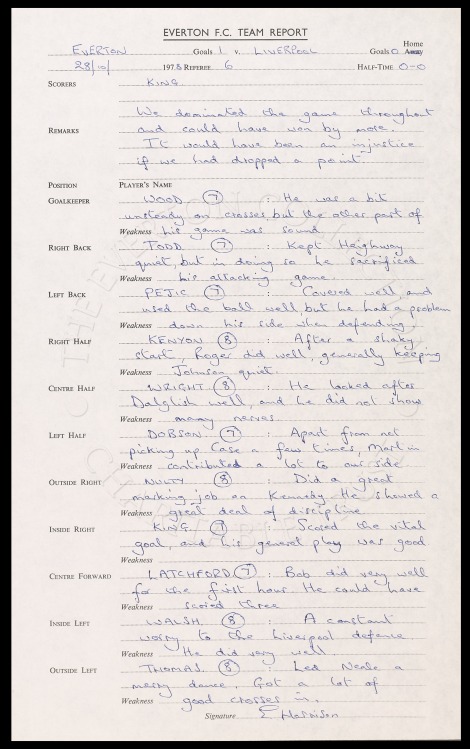 EVERTON F.C. TEAM REPORT
Home
EVERTON Goals 1 v. LIVERPOOL Goals 0 Away
28/10/ 1978 REFEREE 6 HALF-TIME 0-0
SCORERS KING
We dominated the game throughout
REMARKS and could have won by more.
It would have been an injustice
if we had dropped a point
POSITION PLAYER'S NAME
GOALKEEPER WOOD 7 : He was a bit
unsteady on crosses, but the other part of
Weakness his game was sound
RIGHT BACK TODD 7 : Kept Heighway
quiet, but in doing so he sacrificed
Weakness his attacking game.
LEFT BACK PEJIC 7 : Covered well and
used the ball well, but he had a problem
Weakness down his side when defending.
RIGHT HALF KENYON 8 : After a shaky
start, Roger did well, generally keeping
Weakness Johnson quiet.
CENTRE HALF WRIGHT 8 : He looked after
Dalglish well, and he did not show
Weakness many nerves
LEFT HALF DOBSON 7 : Apart from not
picking up Case a few times, Martin
Weakness contributed a lot to our side
OUTSIDE RIGHT NULTY 8 : Did a great
marking job on Kennedy. He showed a
Weakness great deal of discipline
INSIDE RIGHT KING 7 : Scored the vital
goal, and his general play was good
Weakness
CENTRE FORWARD LATCHFORD 7 : Bob did very well
for the first hour. He could have
Weakness scored three
INSIDE LEFT WALSH 8 : A constant
worry to the Liverpool defence
Weakness He did very well
OUTSIDE LEFT THOMAS 8 : Led Neale a
merry dance. Got a lot of
Weakness good crosses in.
Signature E Harrison